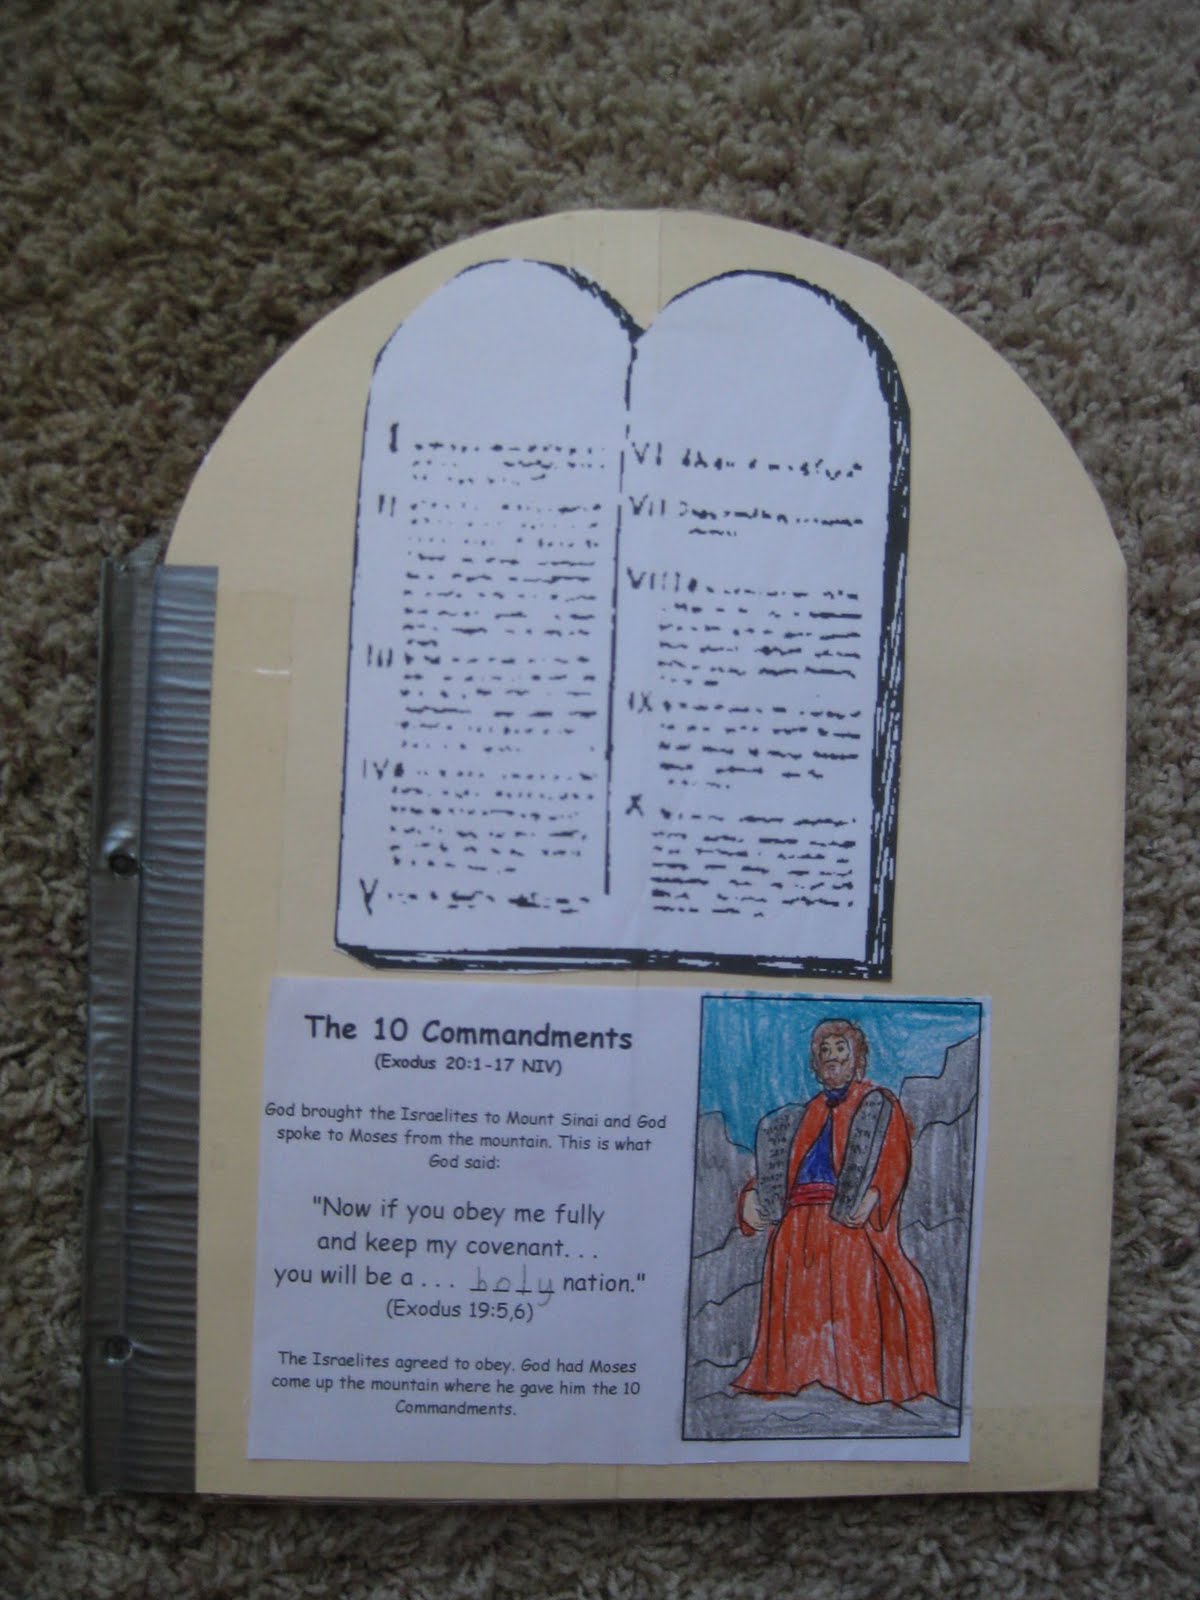 I
II
III
IV
V
VI
VII
VIII
IX
X
The 10 Commandments
(Exodus 20:1-17 NIV)
God brought the Israelites to Mount Sinai and God
spoke to Moses from the mountain. This is what
God said:
"Now if you obey me fully
and keep my covenant. . .
you will be a . . . holy nation."
(Exodus 19:5,6)
The Israelites agreed to obey. God had Moses
come up the mountain where he gave him the 10
Commandments.